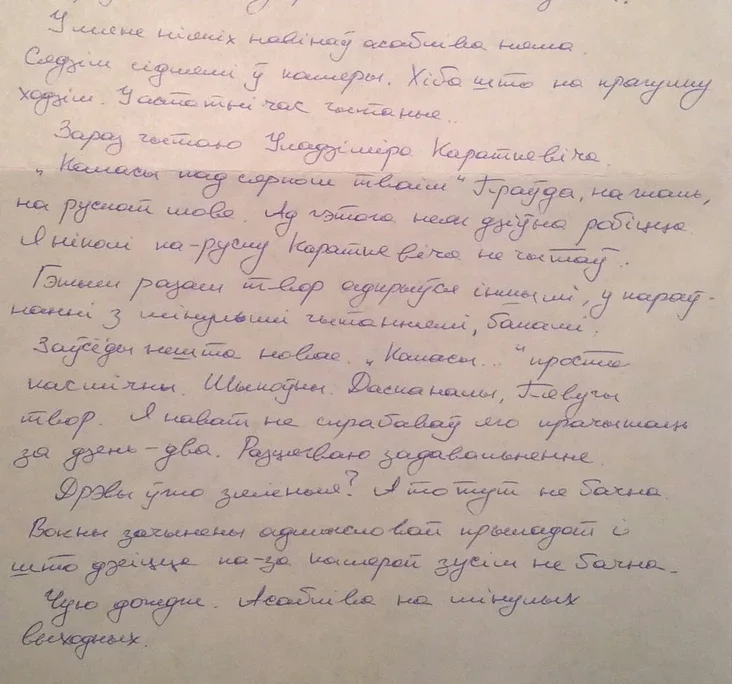 У мяне ніякіх навінаў асабліва няма.
Сядзім сіднямі ў камеры. Хіба што на прагулку
ходзім. У астатні час чытанне..
Зараз чытаю Уладзіміра Караткевіча.
„Каласы пад сярпом тваім" Праўда, на жаль,
на рускай мове. Ад гэтага неяк дзіўна робіцца.
Я ніколі па-руску Караткевіча не чытаў.
Гэтым разам твор адкрыўся іншымі, у параў-
нанні з мінулымі чытаннямі, бакамі.
Заўсёды нешта новае. „Каласы..." проста
касмічны. Шыкоўны. Дасканалы, Пявучы
твор. Я нават не спрабаваў яго прачытаць
за дзень-два. Расцягваю задавальненне.
Дрэвы ўжо зялёныя? А то тут не бачна.
Вокны зачынены адмысловай прыладай і
што дзеіцца па-за камерай зусім не бачна.
Чую дождж. Асабліва на мінулых
выходных.